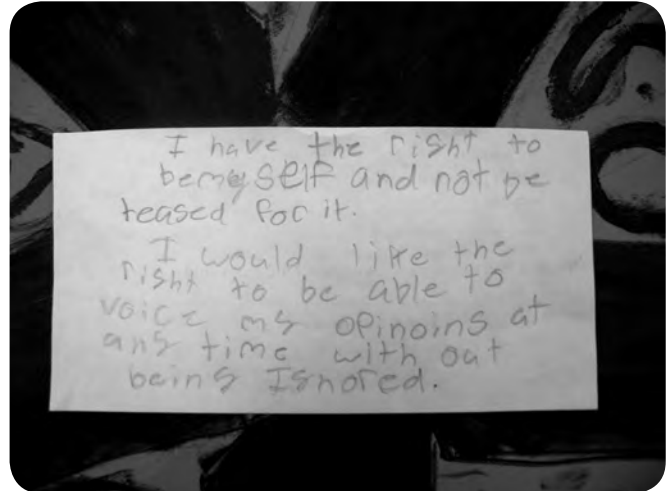 I have the right to
bemyself and not be
teased for it.
I would like the
right to be able to
voice my opinoins at
any time with out
being Ignored.